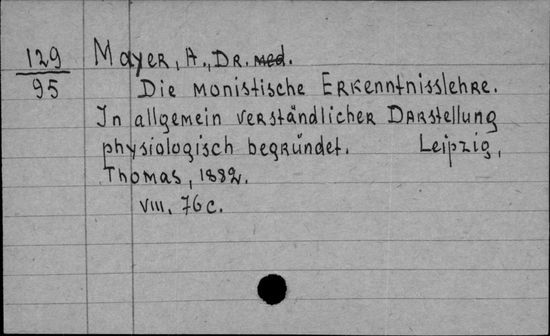 129
95
Mayer, A., Dr. med.
Die monistische Erkenntnisslehre.
In allgemein verständlicher Darstellung
physiologisch begründet. Leipzig,
Thomas, 1882.
VIII, 76 c.